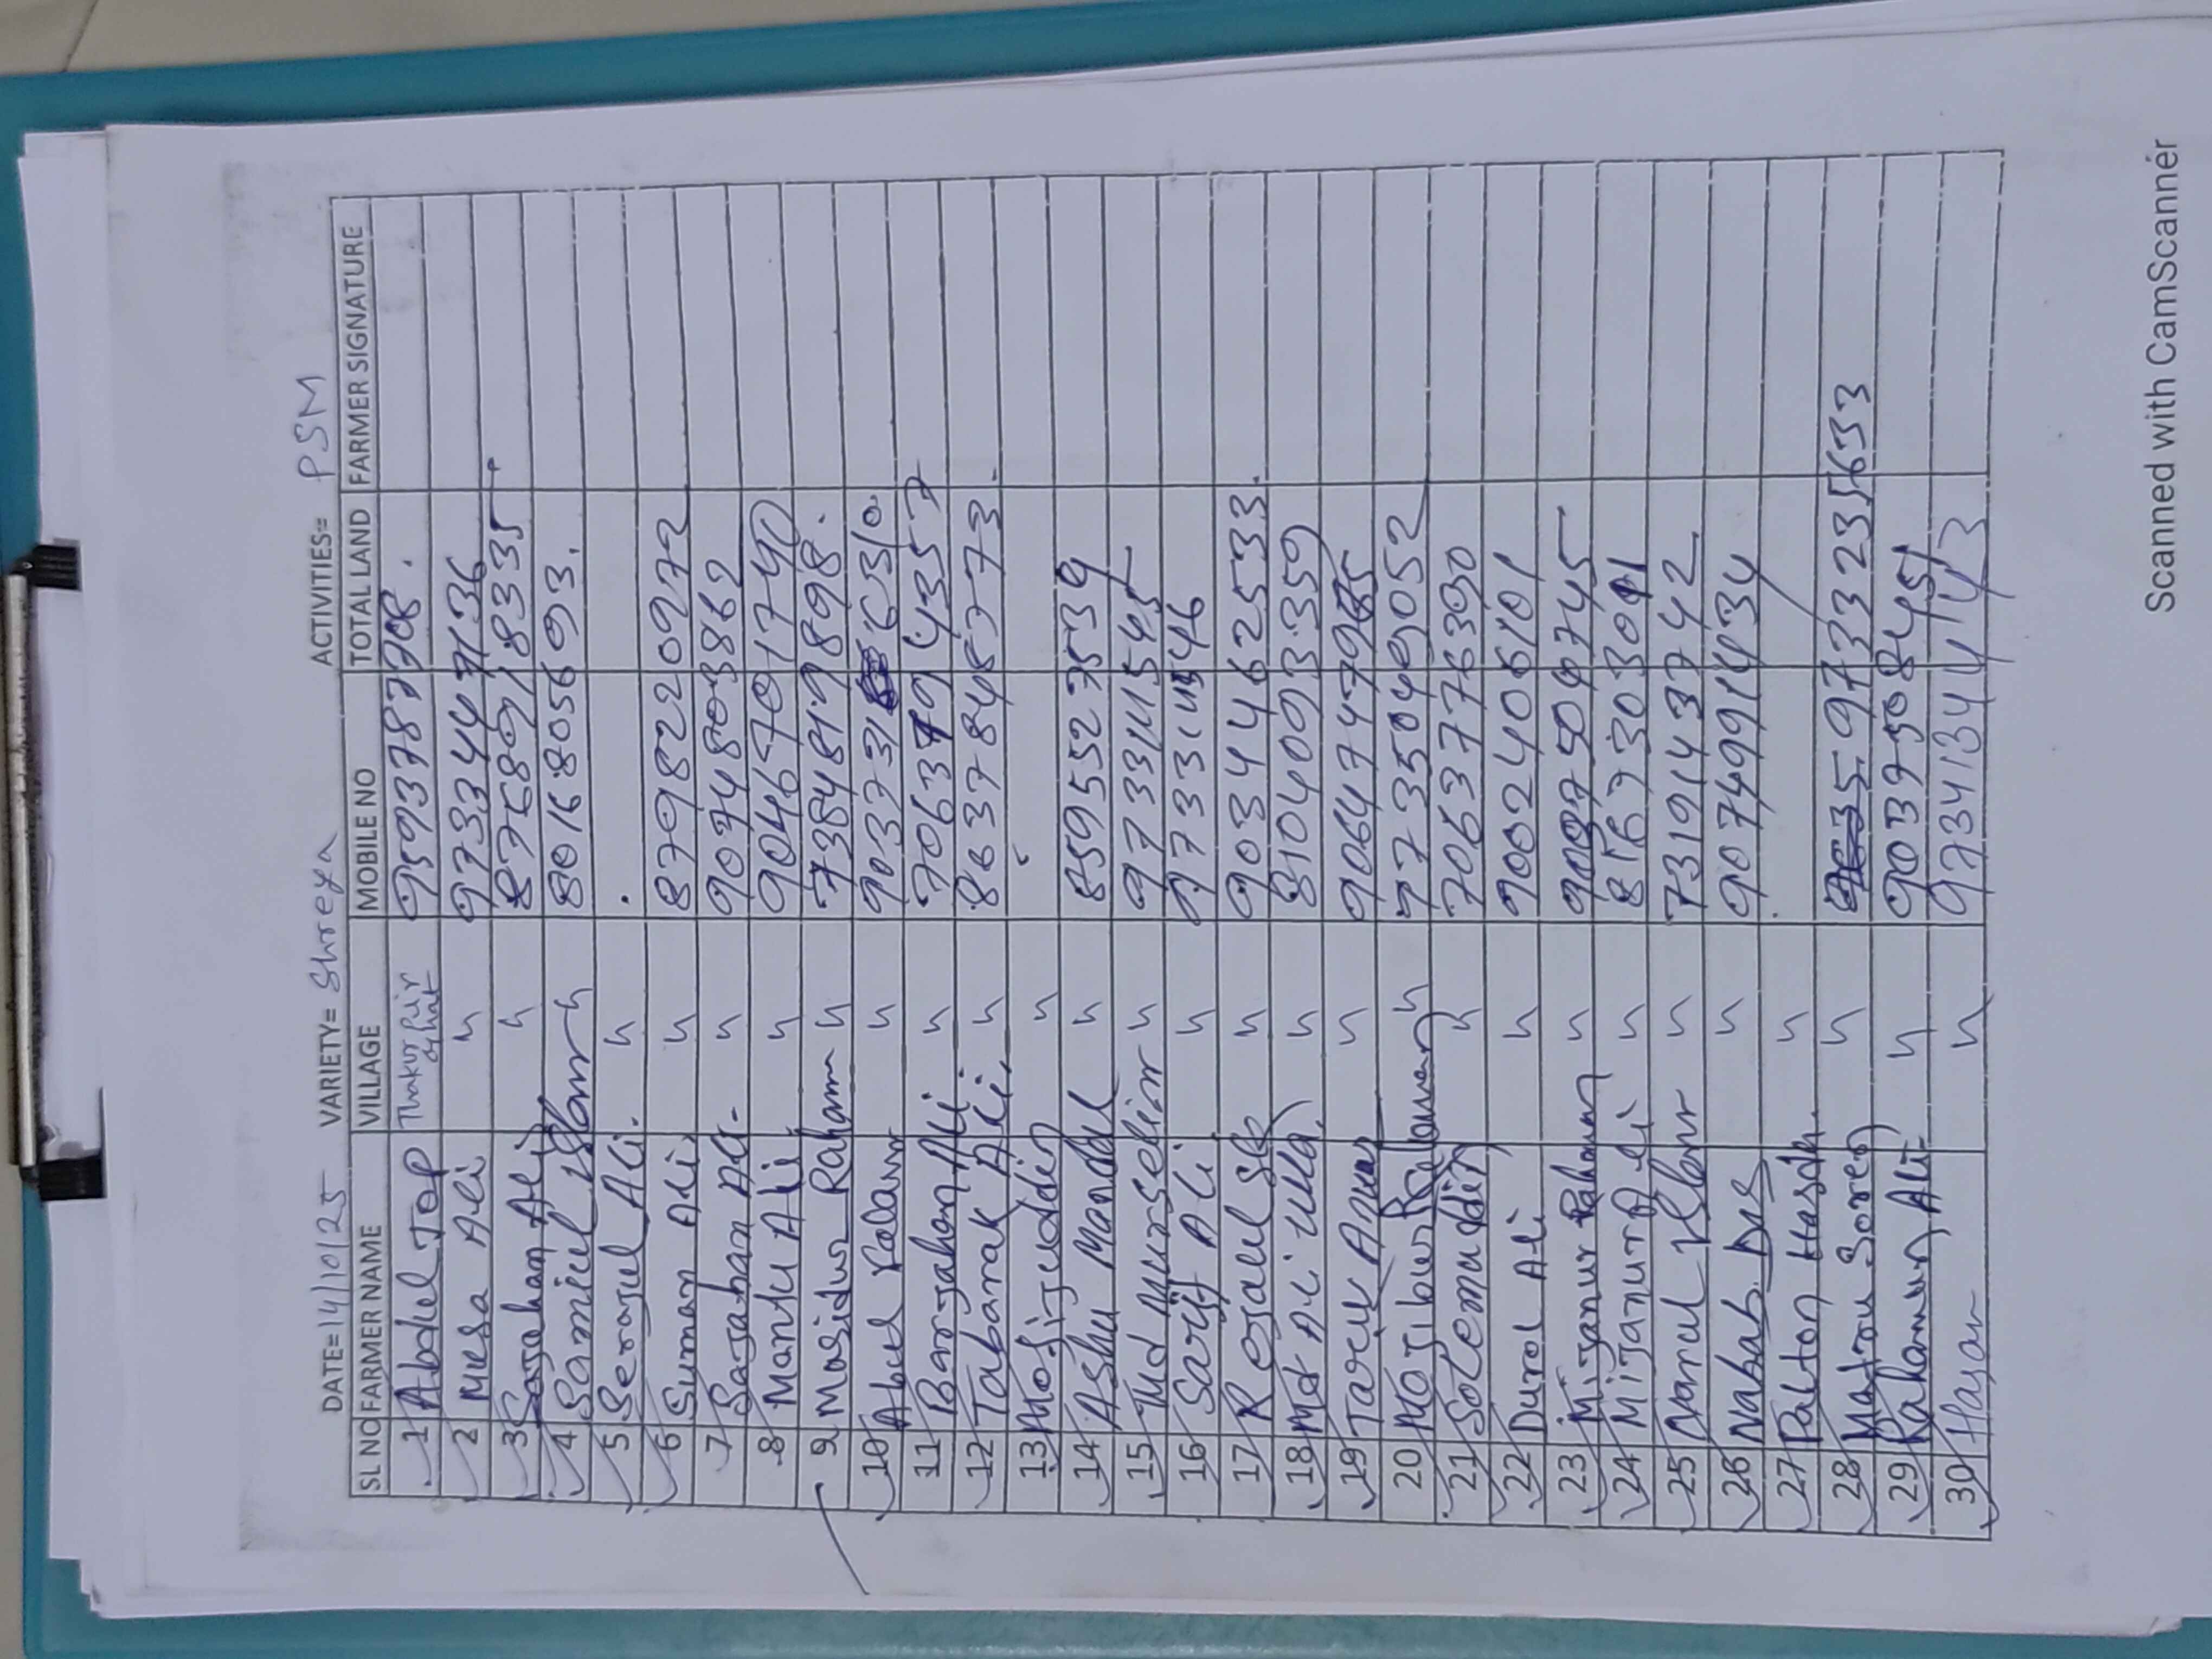 DATE=14/10/25 VARIETY= Shreya ACTIVITIES= PSM
SL NO FARMER NAME VILLAGE MOBILE NO TOTAL LAND FARMER SIGNATURE
1 Abdul TOP Thakur Pir ghat
2 Musa Ali 〃 9733447136
3 Sajahan Ali 〃
4 Samiul Islam 〃 8016805693.
5 Serajul Ali. 〃
6 Suman Ali 〃 8798220972
7 Sajahan Ali. 〃 9074803862
8 Mantu Ali 〃 9046701740
9 Masidur Raham 〃
10 Abul Kalam 〃
11 Barjahan Ali 〃
12 Tabarak Ali. 〃 8637845773.
13 Mosijuddin 〃
14 Ashu Mondal 〃 8595527539
15 Md Murselim 〃 9733111545
16 Sarif Ali 〃 9733111546
17 Rejaul Sk 〃 9034462533.
18 Md Ali ulla 〃 8104093359
19 Tarik Anwar 〃
20 Mojibur Rahaman 〃
21 Solemuddin 〃 7063776390
22 Durol Ali 〃 9002406101
23 Mijanur Rahaman 〃
24 Mijanur Ali 〃
25 Narul Islam 〃 7319143742
26 Nabab Das 〃 9074991434
27 Palton Hasda 〃
28 Matru Soren 〃 9733235633
29 Rahaman Ali 〃
30 Hasan 〃
Scanned with CamScanner